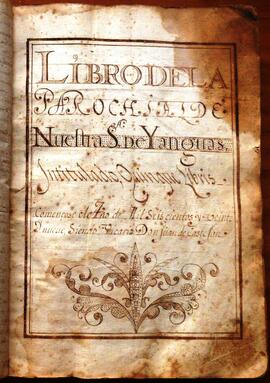 LIBRO DE LA
PAROCHIA DE
Nuestra S.ª de Yanguas,
Libris
Comenzose ole Año de Mil Seis cientos y Veinte
y nueve, Siendo Vicario Don Juan de